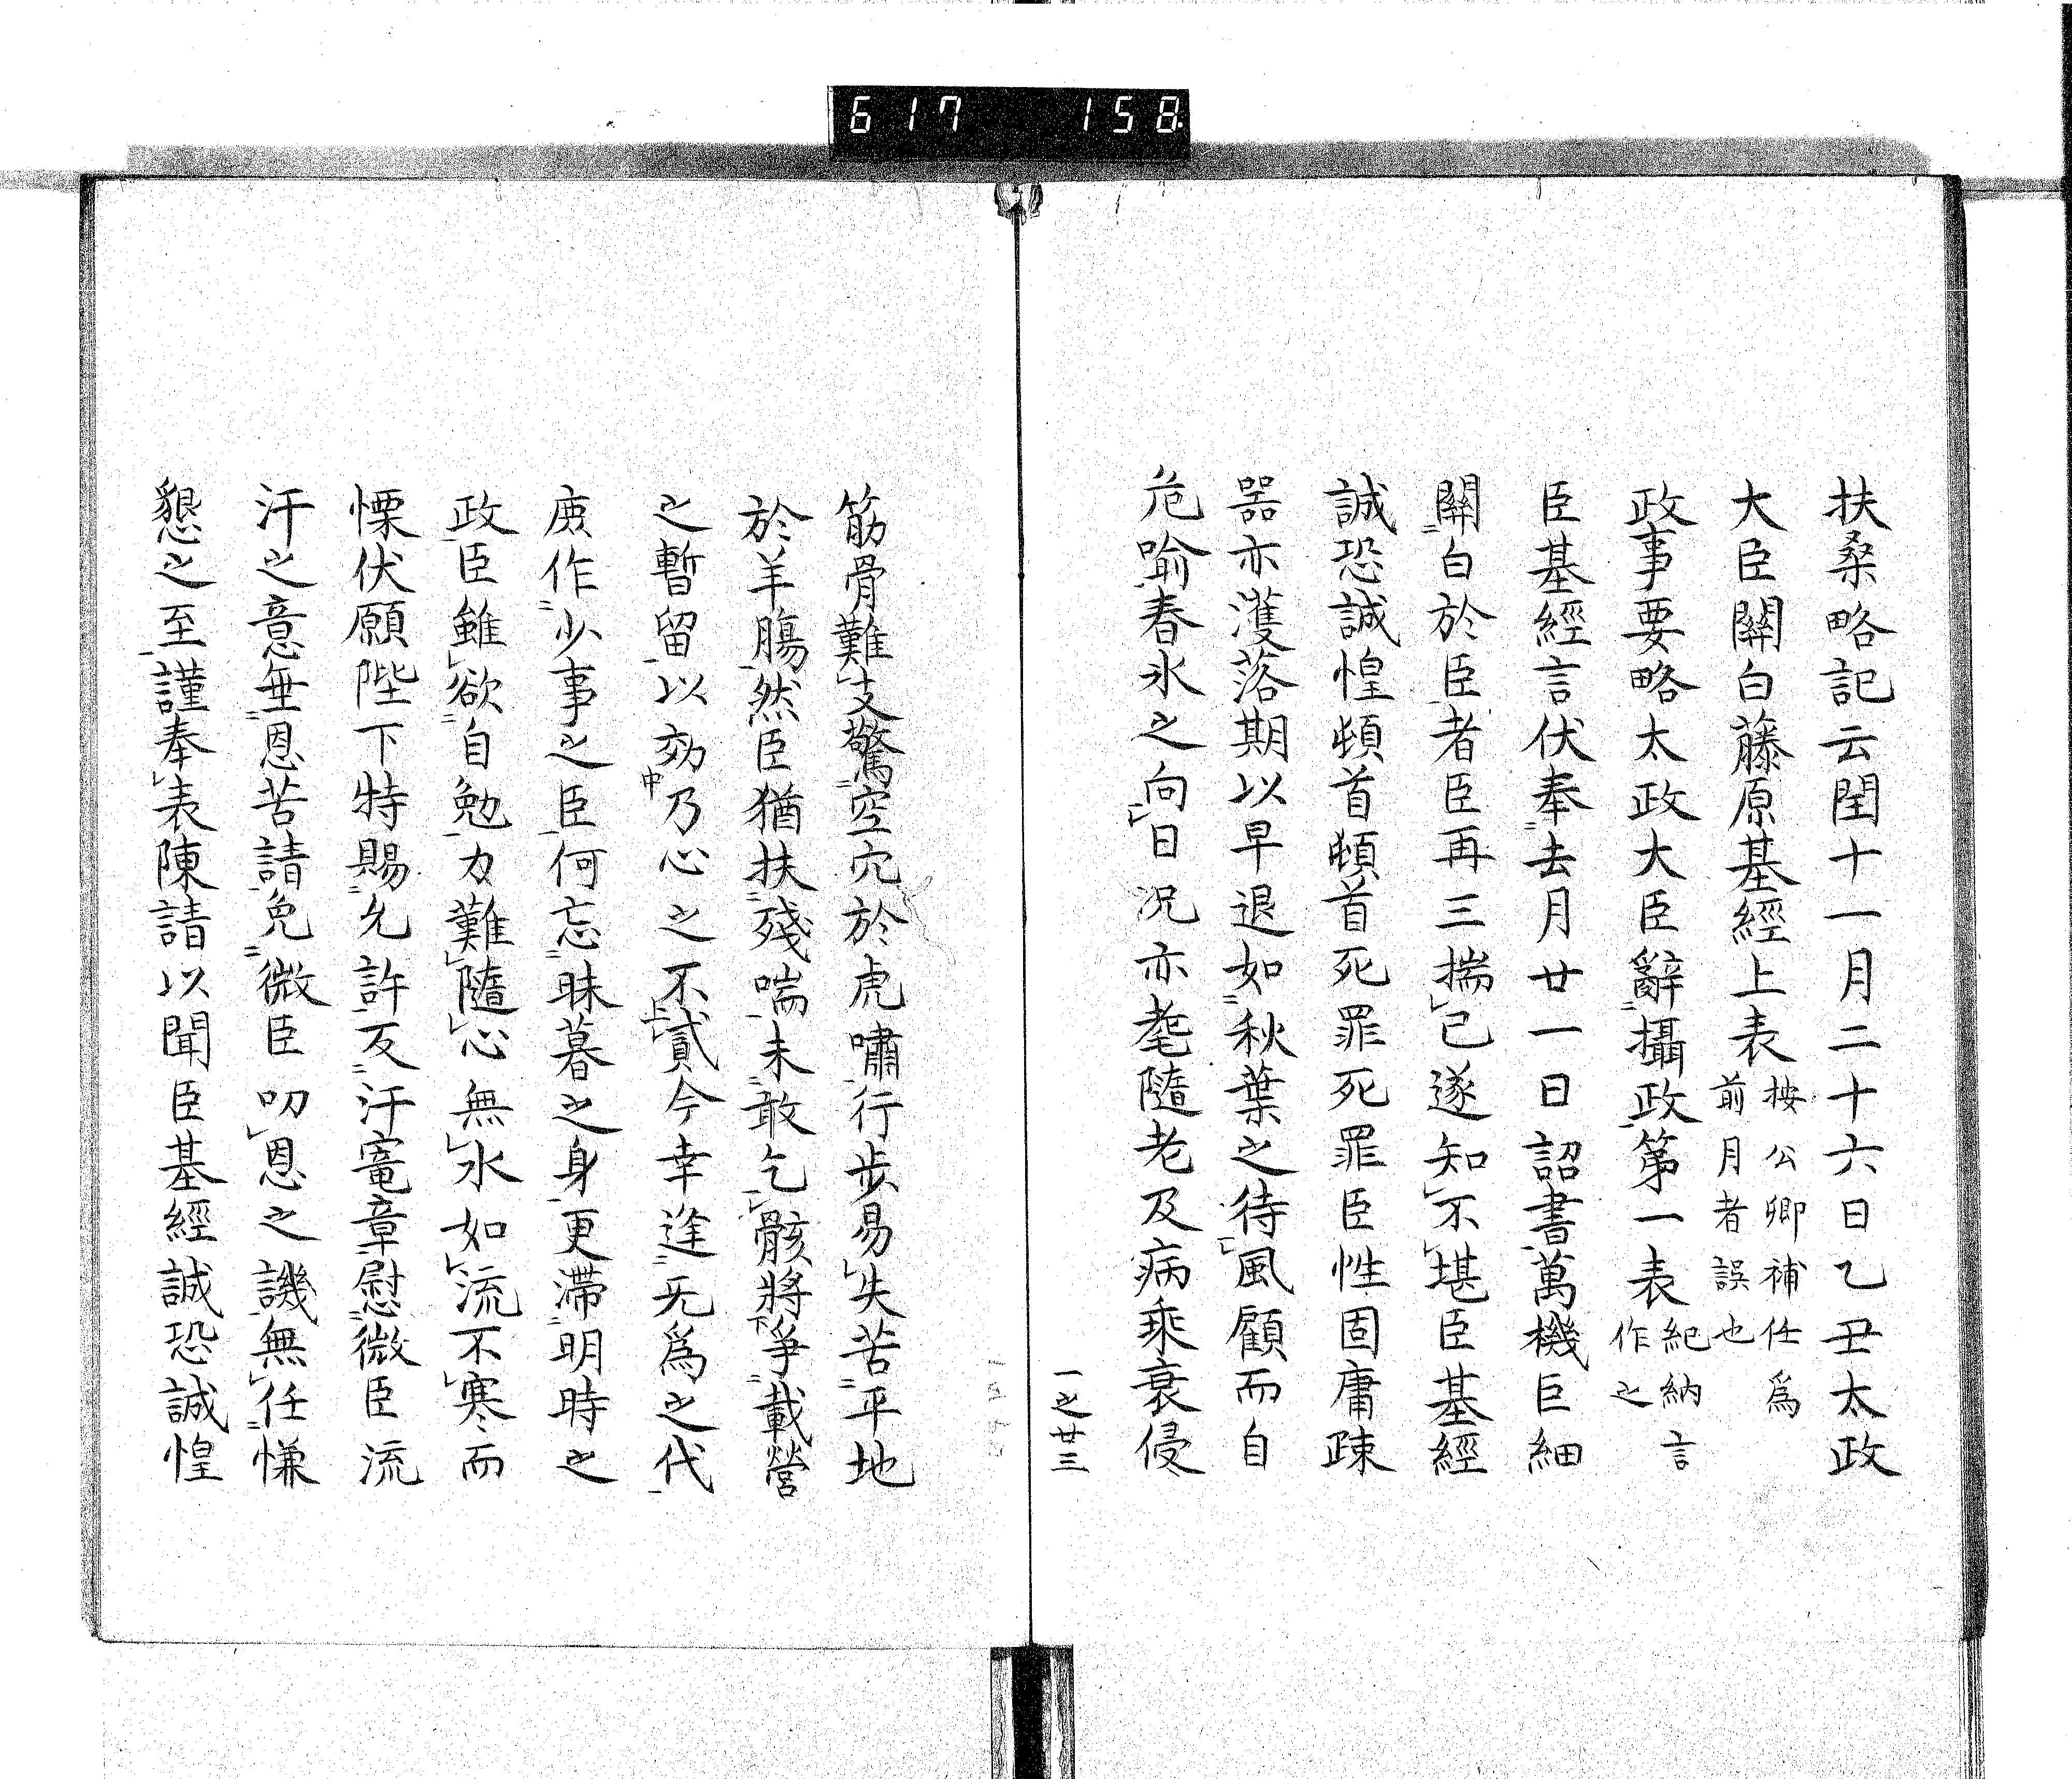 617 158.
扶桑略記云閏十一月二十六日乙丑太政
大臣關白藤原基經上表按公卿補任爲前月者誤也
政事要略太政大臣辭攝政第一表紀納言作之
臣基經言伏奉去月廿一日詔書萬機巨細
關白於臣者臣再三揣己遂知不堪臣基經
誠恐誠惶頓首頓首死罪死罪臣性固庸疎
器亦濩落期以早退如秋葉之待風顧而自
危喻春氷之向日況亦耄隨老及病乘衰侵
一之廿三
筋骨難支驚空穴於虎嘯行步易失苦平地
於羊膓然臣猶扶殘喘未敢乞骸將爭載營
之暫留以効乃心之不貳今幸逢旡爲之代
庻作少事之臣何忘昧暮之身更滯明時之
政臣雖欲自勉力難隨心無氷如流不寒而
慄伏願陛下特賜允許反汗竃章慰微臣流
汗之意無恩苦請免微臣叨恩之譏無任慊
懇之至謹奉表陳請以聞臣基經誠恐誠惶